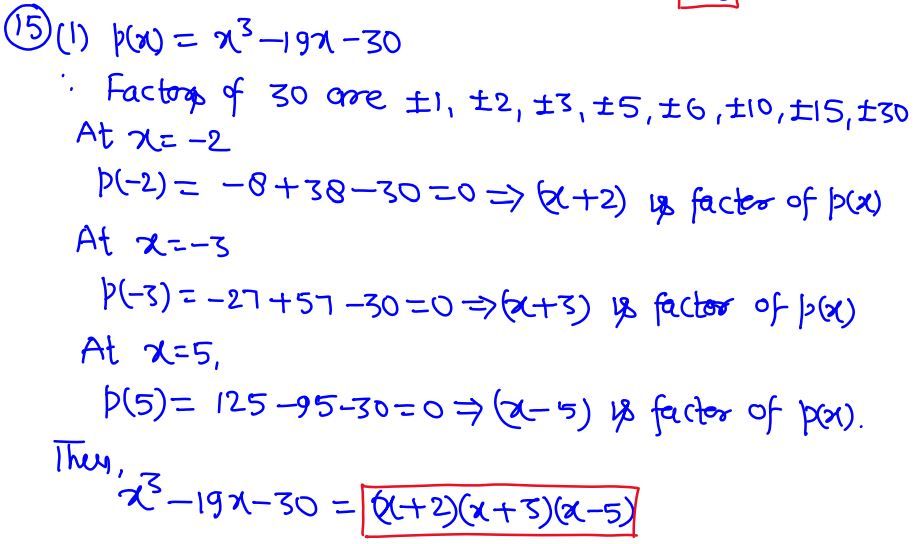 15 (1) p(x) = x³ - 19x - 30
∵ Factors of 30 are ±1, ±2, ±3, ±5, ±6, ±10, ±15, ±30
At x = -2
p(-2) = -8 + 38 - 30 = 0 ⇒ (x+2) is factor of p(x)
At x = -3
p(-3) = -27 + 57 - 30 = 0 ⇒ (x+3) is factor of p(x)
At x = 5,
p(5) = 125 - 95 - 30 = 0 ⇒ (x-5) is factor of p(x).
Then,
x³ - 19x - 30 = (x+2)(x+3)(x-5)